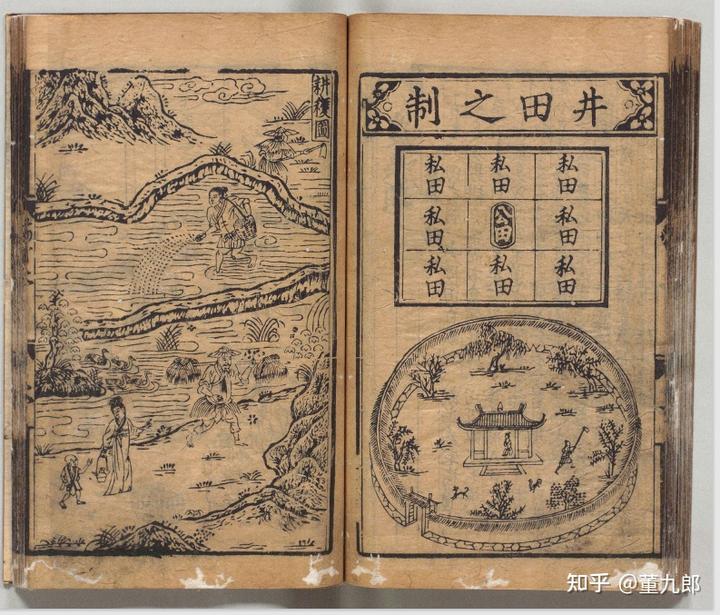 井田之制
私田
私田
私田
私田
公田
私田
私田
私田
私田
耕穫圖
知乎 @董九郎